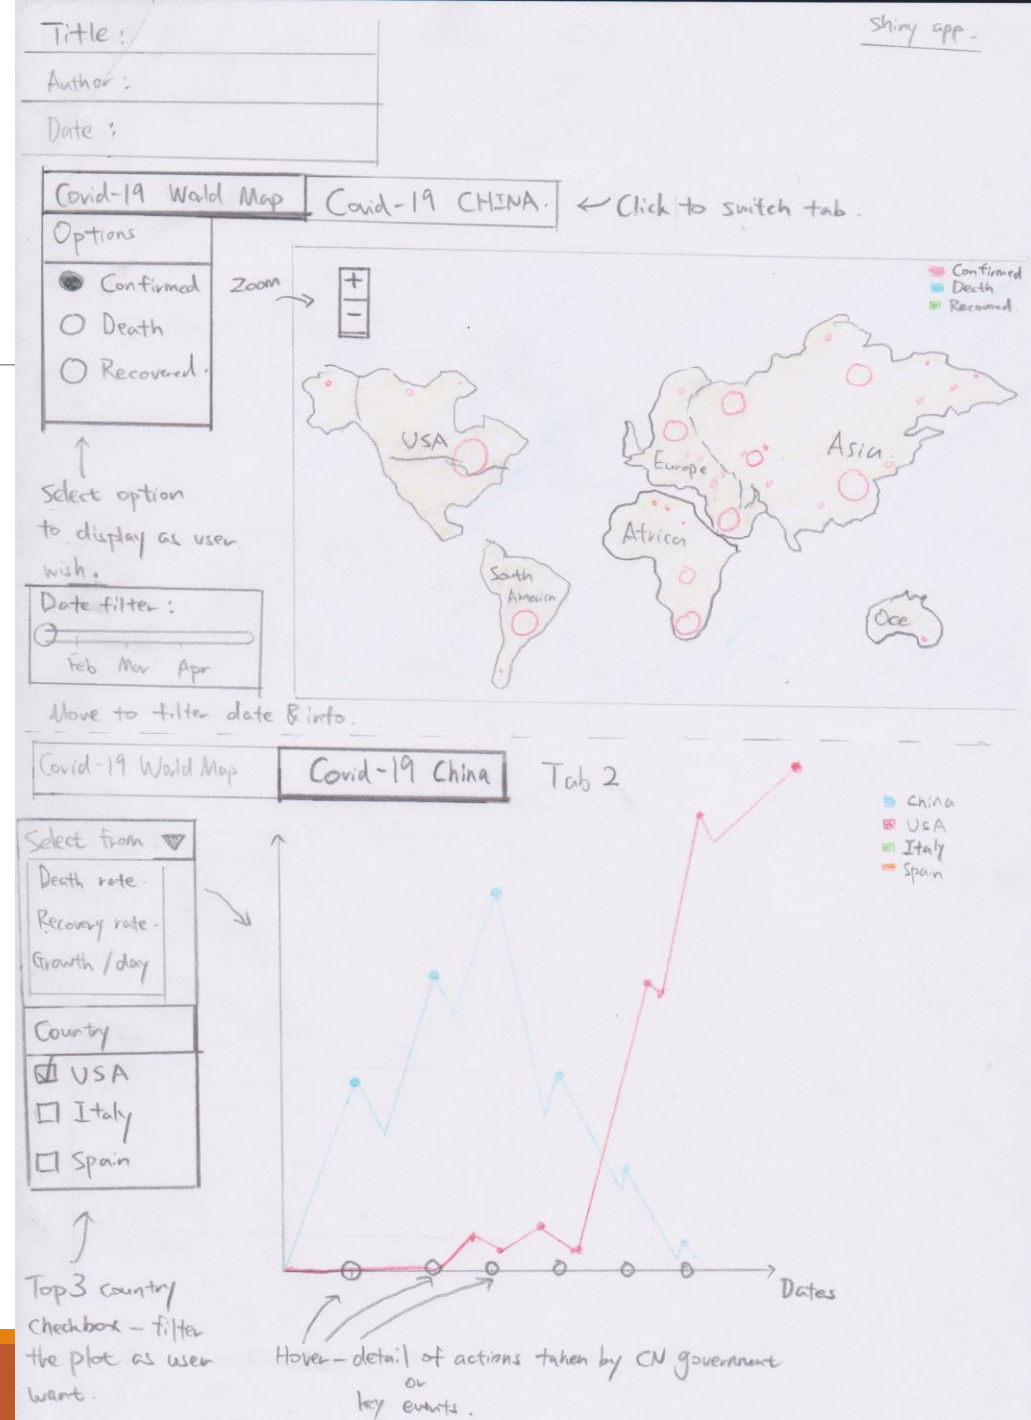 Title :
Shiny app.
Author :
Date :
Covid-19 World Map
Covid-19 CHINA.
← Click to switch tab.
Options
Confirmed
Death
Recovered.
Zoom
+
−
Confirmed
Death
Recovered
USA
Europe
Asia
Africa
South
America
Oce
Select option
to display as user
wish.
Date filter :
Feb Mar Apr
Move to filter date & info.
Covid-19 World Map
Covid-19 China
Tab 2
Select from
Death rate.
Recovery rate.
Growth /day
China
USA
Italy
Spain
Country
USA
Italy
Spain
Dates
Top 3 country
checkbox – filter
the plot as user
want.
Hover – detail of actions taken by CN government
or
key events.